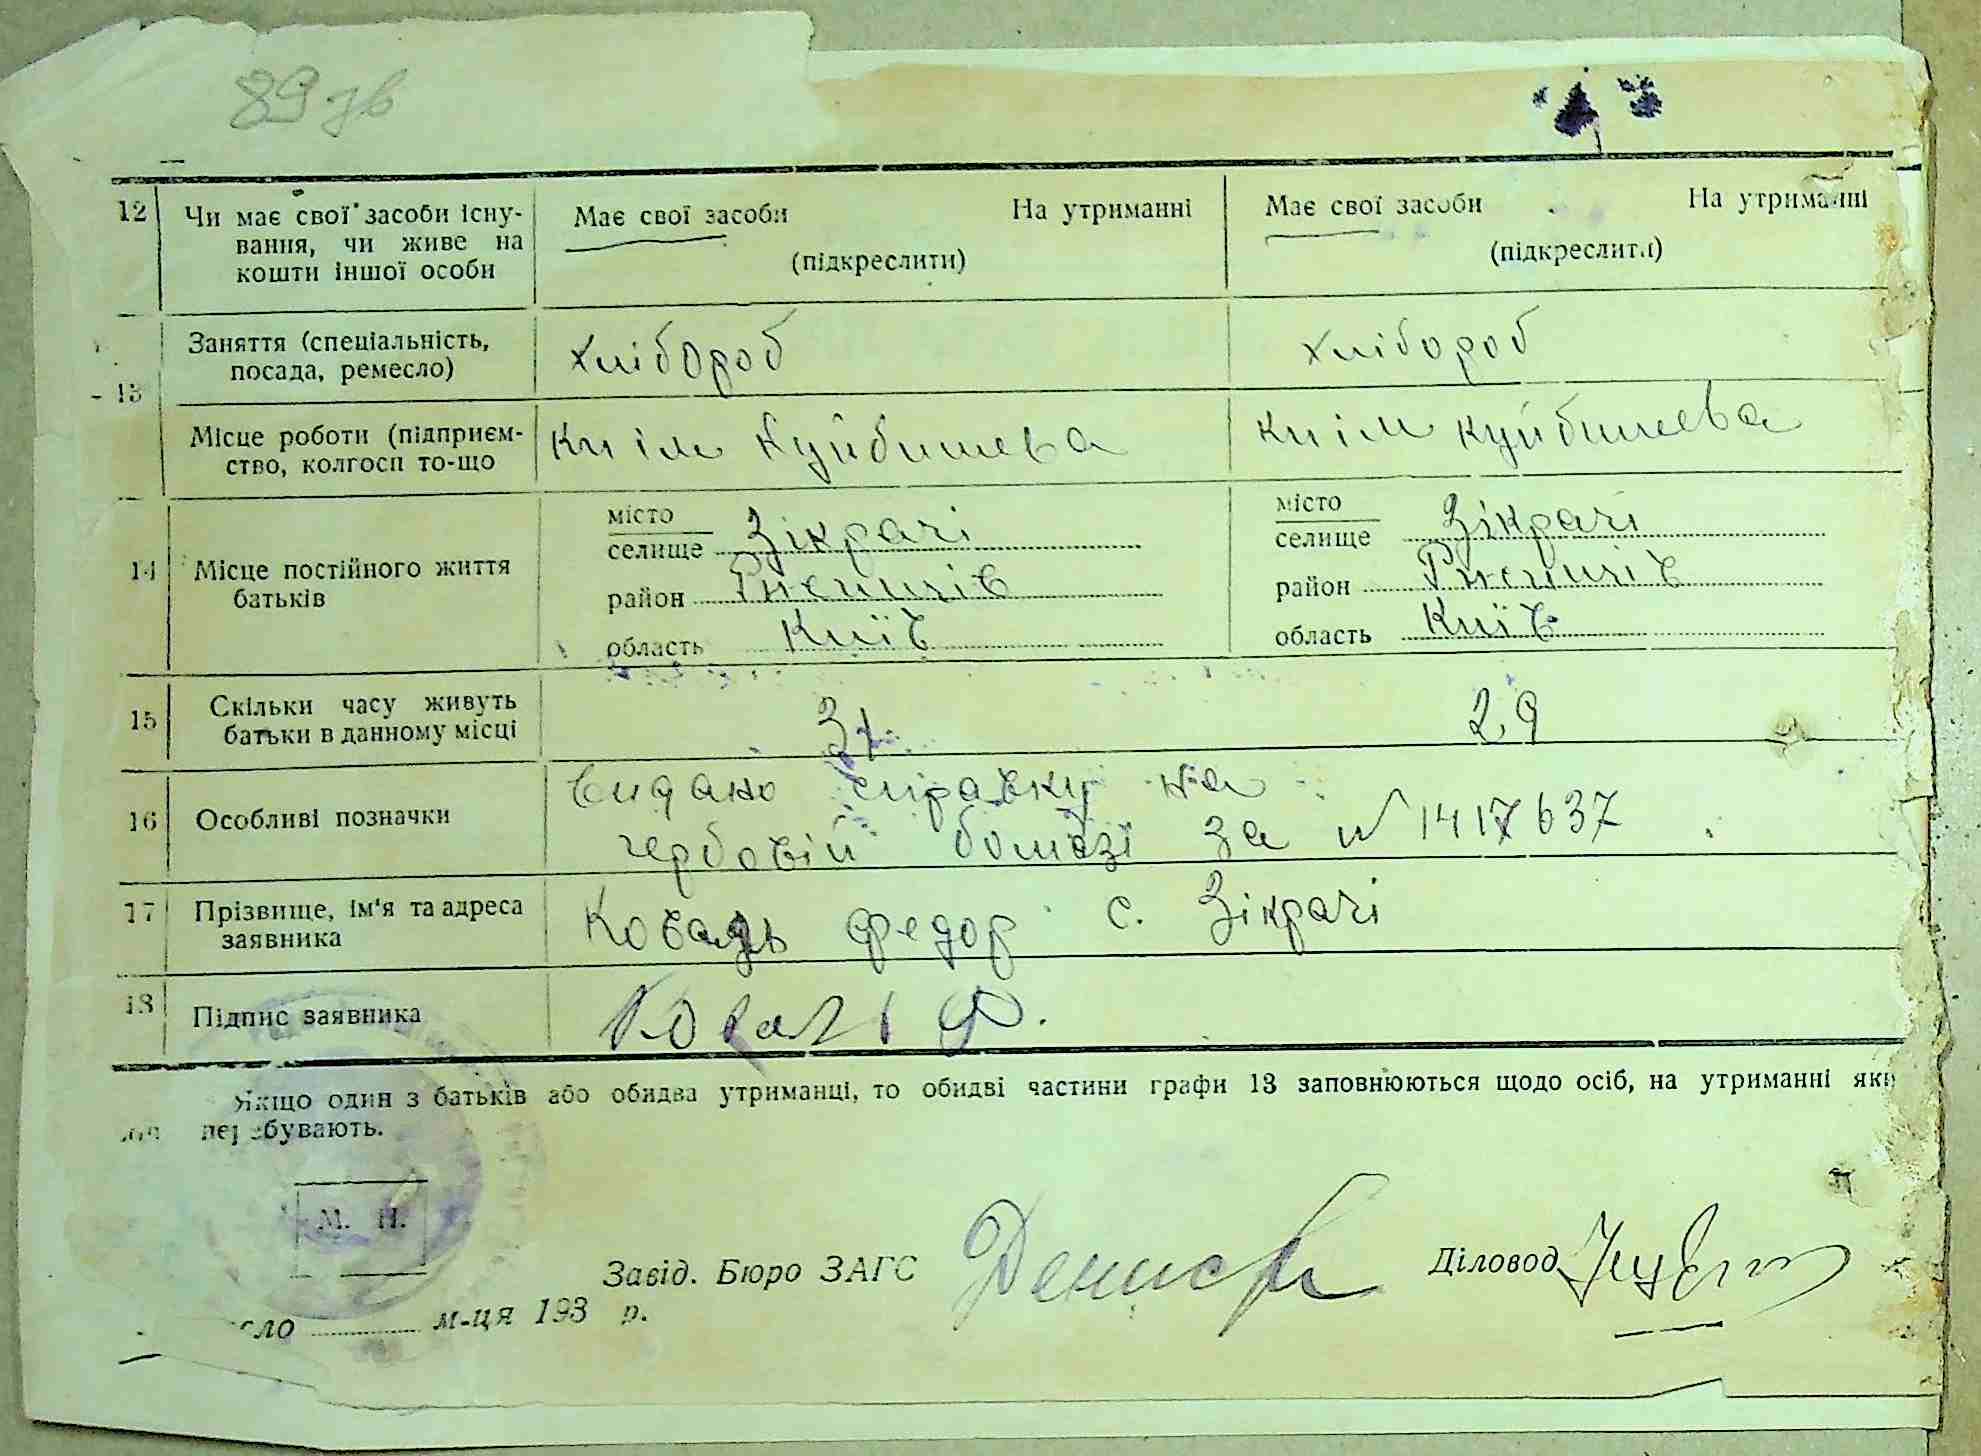 89 зв
12 Чи має свої засоби існу-
вання, чи живе на
кошти іншої особи
Має свої засоби На утриманні
(підкреслити)
Має свої засоби На утриманні
(підкреслити)
13
Заняття (спеціальність,
посада, ремесло)
Хлібороб
хлібороб
Місце роботи (підприєм-
ство, колгосп то-що
Кп ім Куйбишева
Кп ім Куйбишева
14 Місце постійного життя
батьків
місто
селище Зікрачі
район Ржищів
область Київ
місто
селище Зікрачі
район Ржищів
область Київ
15 Скільки часу живуть
батьки в данному місці
31
29
16 Особливі позначки
видано справку на
гербовій бомазі за № 1417637
17 Прізвище, ім'я та адреса
заявника
Коваль Федор с. Зікрачі
18 Підпис заявника
Коваль Ф.
Якщо один з батьків або обидва утриманці, то обидві частини графи 13 заповнюються щодо осіб, на утриманні яки
перебувають.
М. П.
Завід. Бюро ЗАГС
Діловод
сло м-ця 193 р.